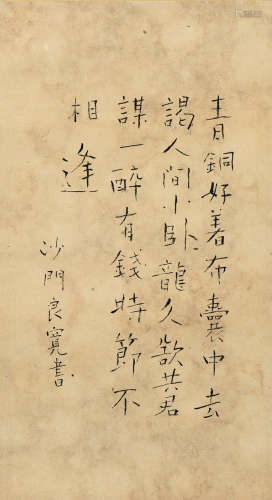 青銅好著布囊中去
謁人間小臥龍久欲共君
謀一醉有錢時節不
相逢
沙門良寬書